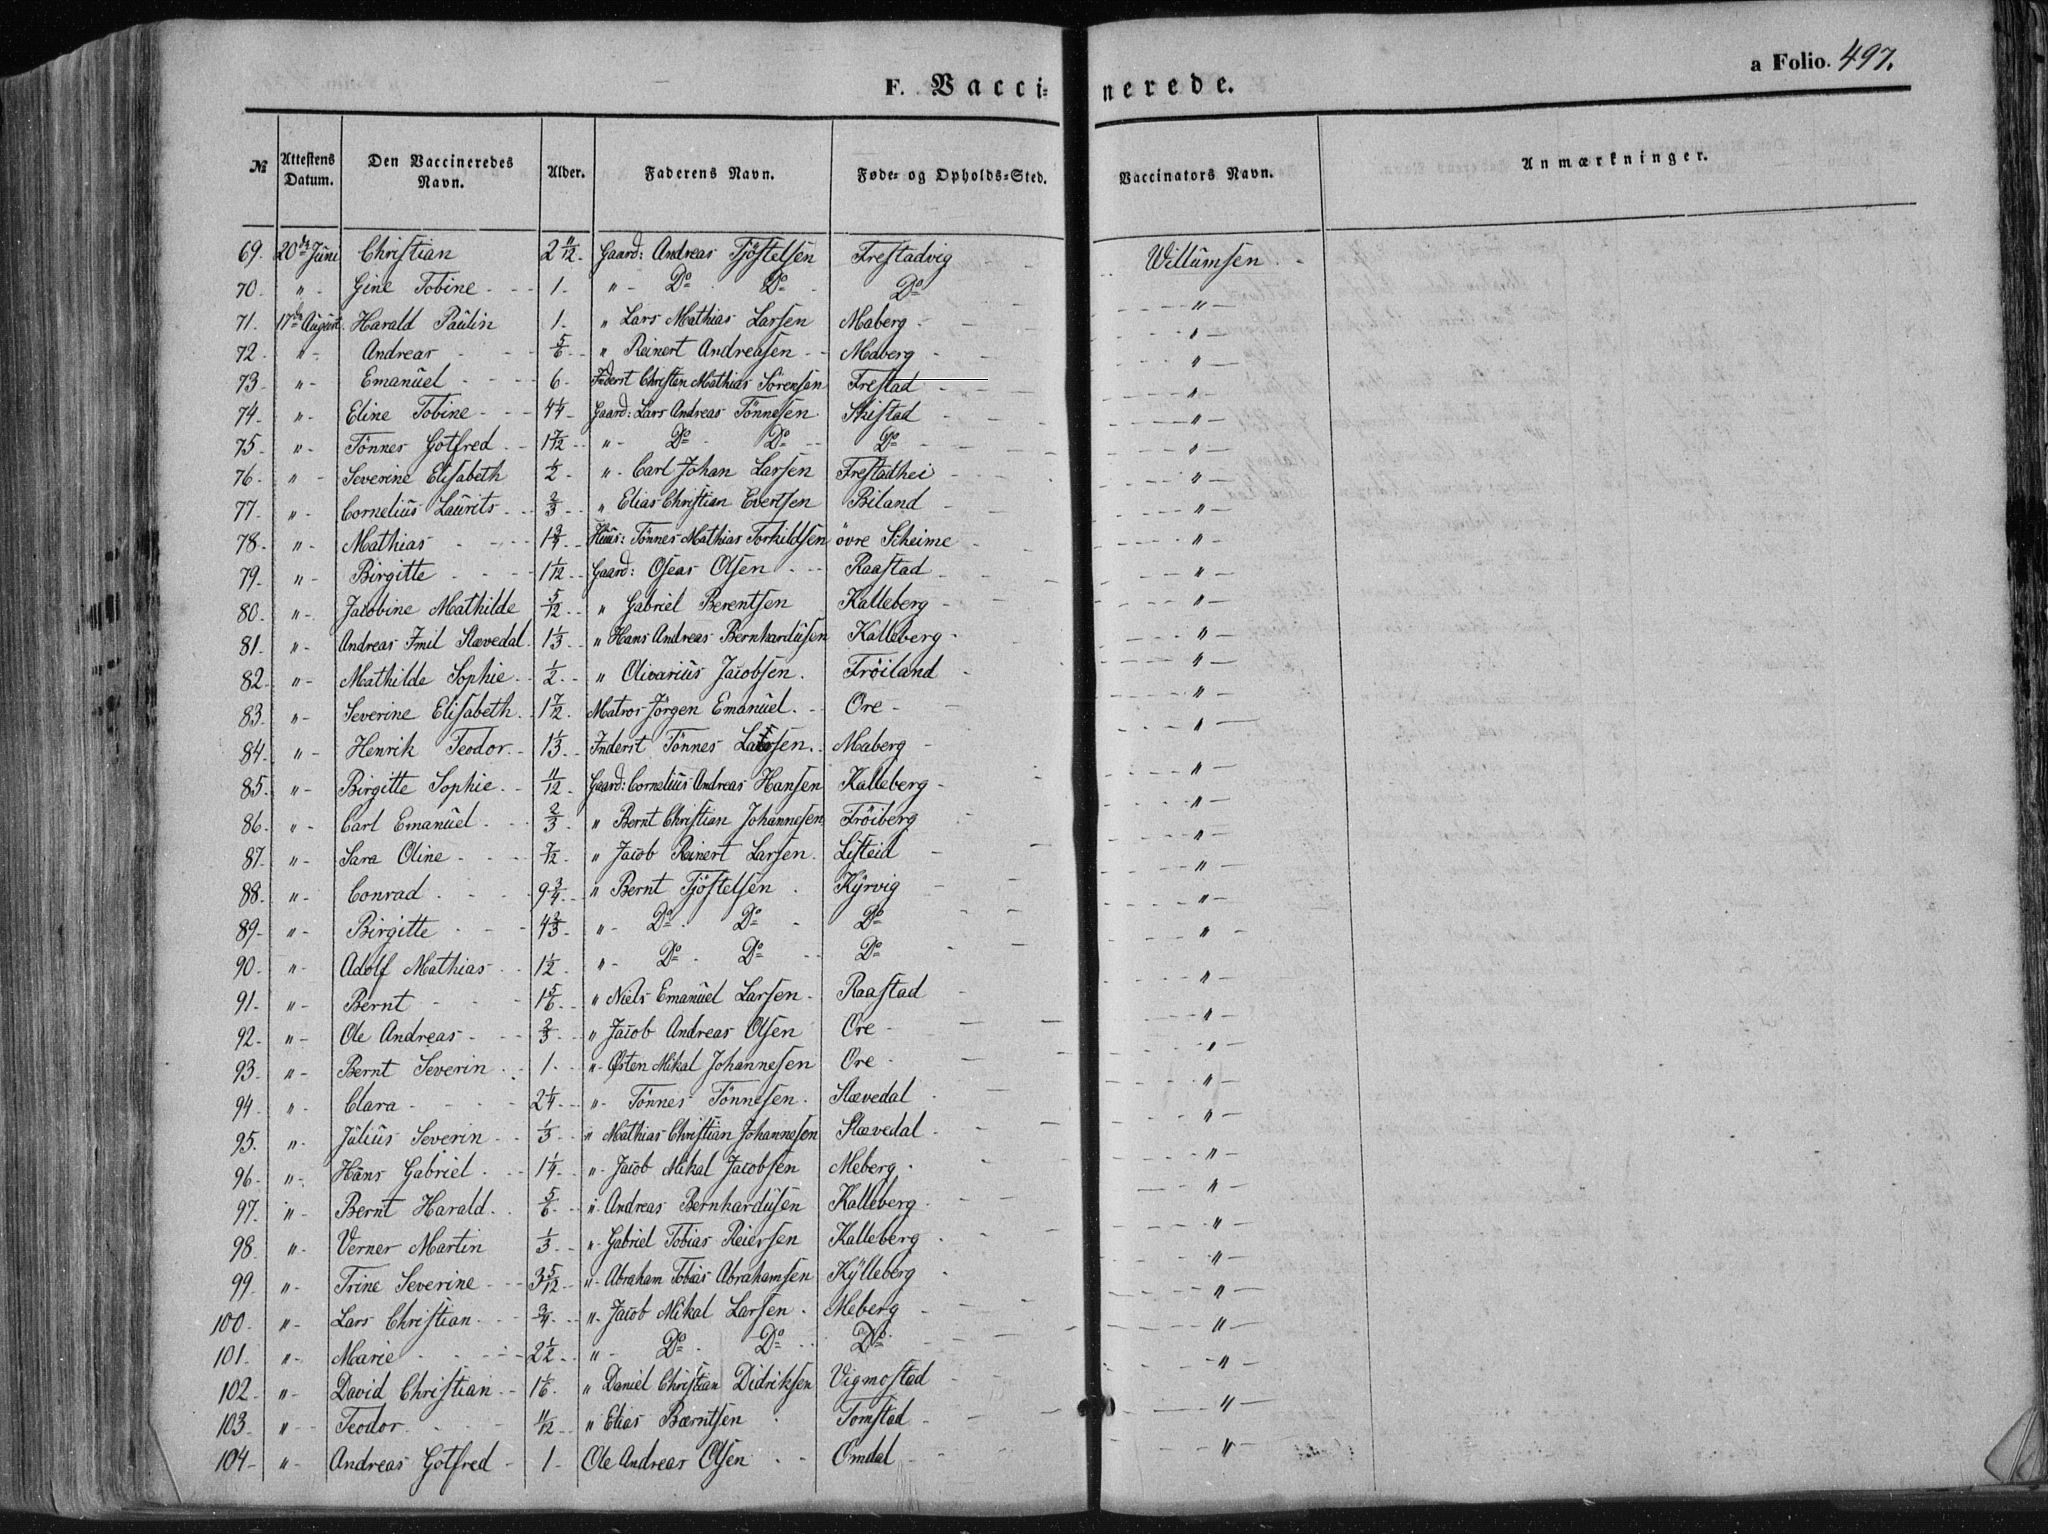 a Folio. 497.
F. Vacci- nerede.
№ Attestens Datum. Den Vaccineredes Navn. Alder. Faderens Navn. Føde- og Opholds-Sted. Vaccinators Navn. Anmærkninger.
69. 20de Juni Christian 2 11/12 Gaard: Andreas Tjöstelsen Frestadvig Willumsen
70. " Gine Tobine 1. " Do Do Do "
71. 17de August. Harald Paulin 1. " Lars Mathias Larsen Maberg "
72. " Andreas 5/6 " Reinert Andreasen Maberg "
73. " Emanuel 6. Inderst Christen Mathias Sörensen Frestad "
74. " Eline Tobine 4 1/4 Gaard: Lars Andreas Tönnesen Skistad "
75. " Tönnes Gotfred 1 7/12 " Do Do Do "
76. " Severine Elisabeth 1/2 " Carl Johan Larsen Frestadhei "
77. " Cornelius Laurits 2/3 " Elias Christian Evertsen Biland "
78. " Mathias 1 3/4 Huus: Tönnes Mathias Torkildsen övre Scheime "
79. " Birgitte 1 1/12 Gaard: Oseas Olsen Raastad "
80. " Jacobine Mathilde 5/12 " Gabriel Berentsen Kalleberg "
81. " Andreas Emil Stævedal 1 1/3 " Hans Andreas Bernhardusen Kalleberg "
82. " Mathilde Sophie 1/2 " Olivarius Jacobsen Fröiland "
83. " Severine Elisabeth 1 7/12 Matros Jörgen Emanuel Ore "
84. " Henrik Teodor 1 1/3 Inderst Tönnes Larsen Maberg "
85. " Birgitte Sophie 11/12 Gaard: Cornelius Andreas Hansen Kalleberg "
86. " Carl Emanuel 2/3 " Bernt Christian Johannesen Fröiberg "
87. " Sara Oline 7/12 " Jacob Reinert Larsen Listeid "
88. " Conrad 9 3/4 " Bernt Tjöstelsen Kyrvig "
89. " Birgitte 4 2/3 " Do Do Do "
90. " Adolf Mathias 1 1/2 " Do Do Do "
91. " Bernt 1 5/6 " Niels Emanuel Larsen Raastad "
92. " Ole Andreas 2/3 " Jacob Andreas Olsen Ore "
93. " Bernt Severin 1. " Østen Mikal Johannesen Ore "
94. " Clara 2 1/4 " Tönnes Tönnesen Stævedal "
95. " Julius Severin 1/3 " Mathias Christian Johannesen Stævedal "
96. " Hans Gabriel 1 1/4 " Jacob Mikal Jacobsen Meberg "
97. " Bernt Harald 5/6 " Andreas Bernhardusen Kalleberg "
98. " Verner Martin 1/3 " Gabriel Tobias Reiersen Kalleberg "
99. " Trine Severine 3 5/12 " Abraham Tobias Abrahamsen Kylleberg "
100. " Lars Christian 3/4 " Jacob Mikal Larsen Meberg "
101. " Marie 2 1/2 " Do Do Do "
102. " David Christian 1 1/6 " Daniel Christian Didriksen Vigmostad "
103. " Teodor 11/12 " Elias Bærntsen Tomstad "
104. " Andreas Gotfred 1 Ole Andreas Olsen Omdal "